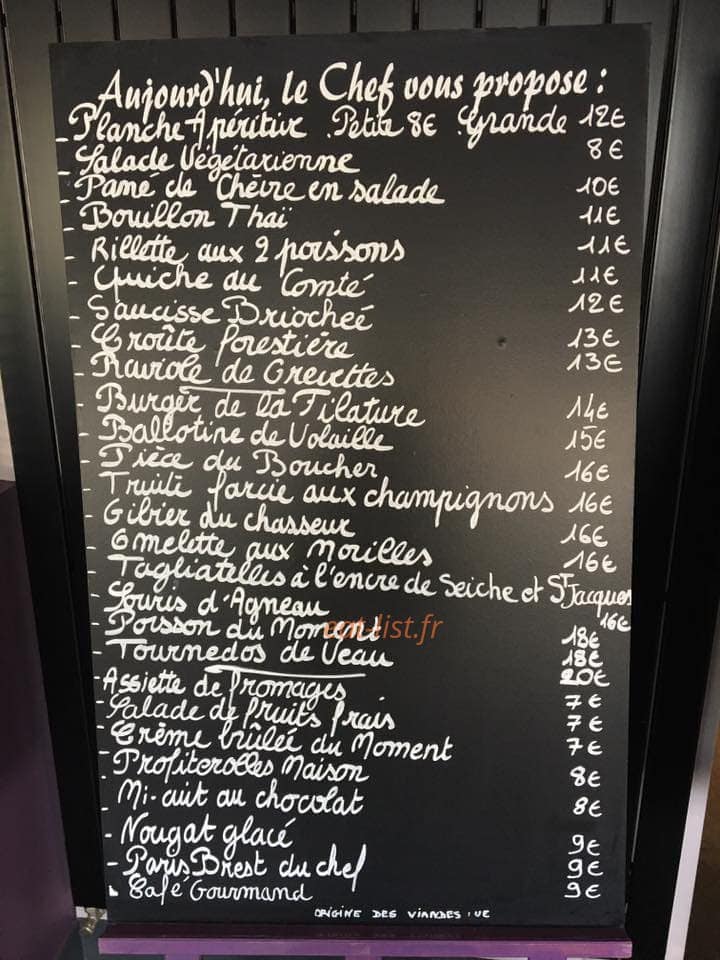 Aujourd'hui, le Chef vous propose :
- Planche Apéritive . Petite 8€ . Grande 12€
- Salade Végétarienne 8€
- Pané de Chèvre en salade 10€
- Bouillon Thaï 11€
- Rillette aux 2 poissons 11€
- Quiche au Comté 11€
- Saucisse Briocheé 12€
- Croûte forestière 13€
- Raviole de Crevettes 13€
- Burger de la Filature 14€
- Ballotine de Volaille 15€
- Pièce du Boucher 16€
- Truite farcie aux champignons 16€
- Gibier du chasseur 16€
- Omelette aux Morilles 16€
- Tagliatelles à l'encre de Seiche et St Jacques
16€
- Souris d'Agneau 18€
- Poisson du Moment 18€
- Tournedos de Veau 20€
- Assiette de fromages 7€
- Salade de fruits frais 7€
- Crème brûlée du Moment 7€
- Profiterolles Maison 8€
- Mi-cuit au chocolat 8€
- Nougat glacé 9€
- Paris Brest du chef 9€
- Café Gourmand 9€
ORIGINE DES VIANDES : UE
eat-list.fr